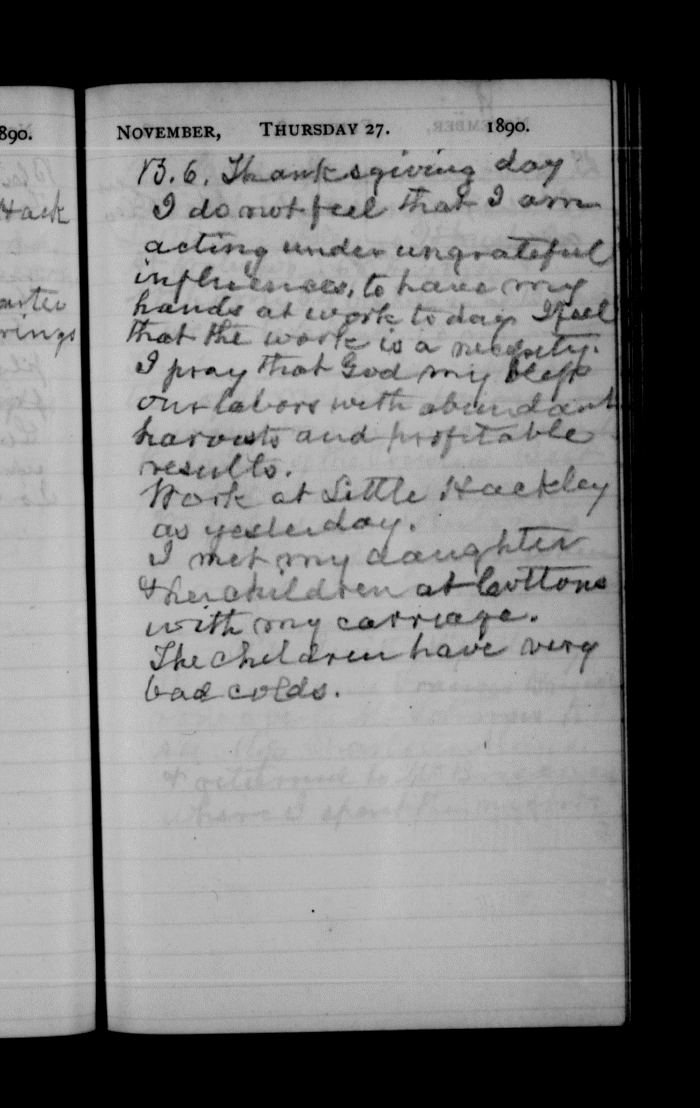 890.
Hack
NOVEMBER, THURSDAY 27. 1890.
B. 6. Thanksgiving day
I do not feel that I am
acting under ungrateful
influences, to have my
hands at work to day. I feel
that the work is a necesity.
I pray that God my bless
our labors with abundant
harvests and profitable
results.
Work at Little Hackley
as yesterday.
I met my daughter
& her children at Cottons
with my carriage.
The children have very
bad colds.